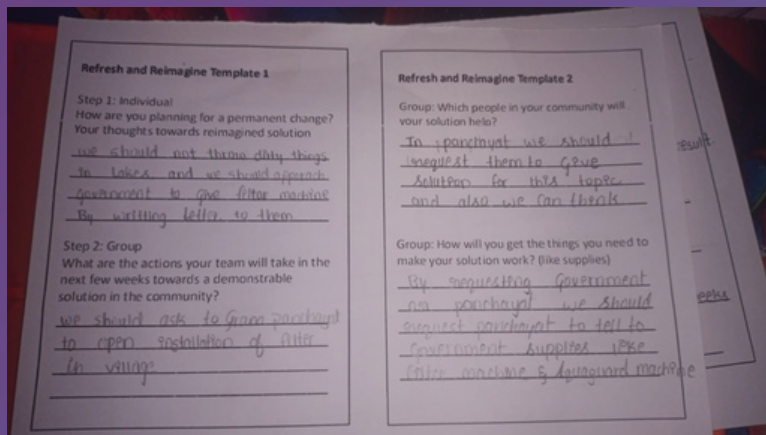 Refresh and Reimagine Template 1
Step 1: Individual
How are you planning for a permanent change?
Your thoughts towards reimagined solution
we should not throw dirty things
in lakes and we should approach
government to give filter machine
By writting letter to them
Step 2: Group
What are the actions your team will take in the
next few weeks towards a demonstrable
solution in the community?
we should ask to Gram panchayat
to open installation of filter
in village
Refresh and Reimagine Template 2
Group: Which people in your community will
your solution help?
In panchayat we should
request them to give
solution for this topic
and also we can think
Group: How will you get the things you need to
make your solution work? (like supplies)
By requesting Government
or panchayat we should
request panchayat to tell to
Government supplies like
filter machine & Aquaguard machine
result.
eeks